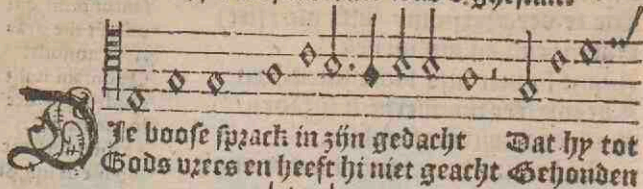 DJe boose sprack in zijn gedacht Dat hy tot
Gods vrees en heeft hi niet geacht Gehonden